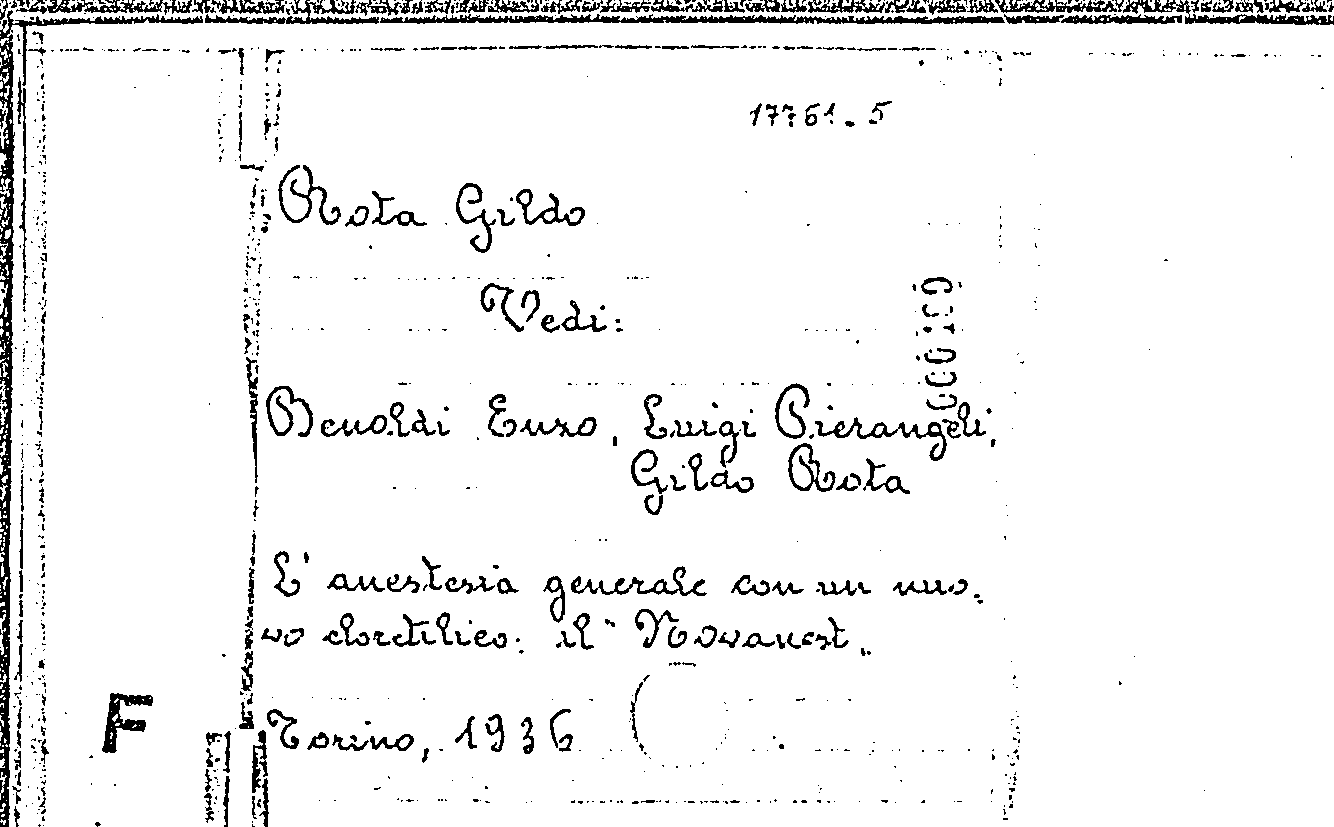 17761.5
Rota Gildo
Vedi:
000199
Benoldi Enzo, Luigi Pierangeli,
Gildo Rota
L'anestesia generale con un nuo-
vo cloretilico: il "Novanest„
F
Torino, 1936